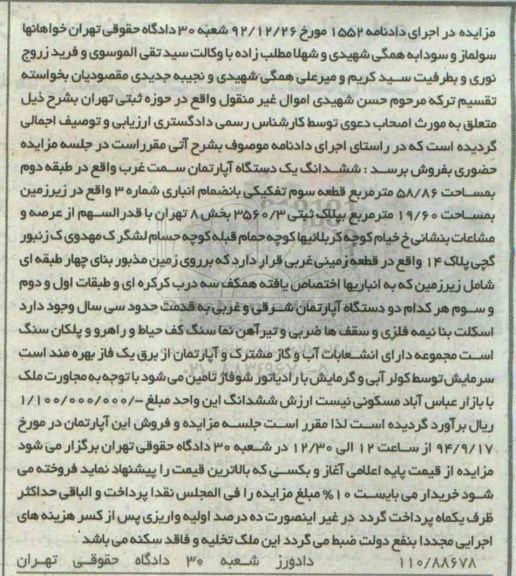 مزایده در اجرای دادنامه ۱۵۵۲ مورخ ۹۲/۱۲/۲۶ شعبه ۳۰ دادگاه حقوقی تهران خواهانها
سولماز و سودابه همگی شهیدی و شهلا مطلب زاده با وکالت سید تقی الموسوی و فرید زروج
نوری و بطرفیت سید کریم و میرعلی همگی شهیدی و نجیبه جدیدی مقصودیان بخواسته
تقسیم ترکه مرحوم حسن شهیدی اموال غیر منقول واقع در حوزه ثبتی تهران بشرح ذیل
متعلق به مورث اصحاب دعوی توسط کارشناس رسمی دادگستری ارزیابی و توصیف اجمالی
گردیده است که در راستای اجرای دادنامه موصوف بشرح آتی مقرراست در جلسه مزایده
حضوری بفروش برسد : ششدانگ یک دستگاه آپارتمان سمت غرب واقع در طبقه دوم
بمساحت ۵۸/۸۶ مترمربع قطعه سوم تفکیکی بانضمام انباری شماره ۳ واقع در زیرزمین
بمساحت ۱۹/۶۰ مترمربع بپلاک ثبتی ۳۵۶۰/۳ بخش ۸ تهران با قدرالسهم از عرصه و
مشاعات بنشانی خ خیام کوچه کربلائیها کوچه حمام قبله کوچه حسام لشگر ک مهدوی ک زنبور
گچی پلاک ۱۴ واقع در قطعه زمینی غربی قرار دارد که برروی زمین مذبور بنای چهار طبقه ای
شامل زیرزمین که به انباریها اختصاص یافته همکف سه درب کرکره ای و طبقات اول و دوم
و سوم هر کدام دو دستگاه آپارتمان شرقی و غربی به قدمت حدود سی سال وجود دارد
اسکلت بنا نیمه فلزی و سقف ها ضربی و تیرآهن نما سنگ کف حیاط و راهرو و پلکان سنگ
است مجموعه دارای انشعابات آب و گاز مشترک و آپارتمان از برق یک فاز بهره مند است
سرمایش توسط کولر آبی و گرمایش با رادیاتور شوفاژ تامین می شود با توجه به مجاورت ملک
با بازار عباس آباد مسکونی نیست ارزش ششدانگ این واحد مبلغ -/۱/۱۰۰/۰۰۰/۰۰۰
ریال برآورد گردیده است لذا مقرر است جلسه مزایده و فروش این آپارتمان در مورخ
۹۴/۹/۱۷ از ساعت ۱۲ الی ۱۲/۳۰ در شعبه ۳۰ دادگاه حقوقی تهران برگزار می شود
مزایده از قیمت پایه اعلامی آغاز و بکسی که بالاترین قیمت را پیشنهاد نماید فروخته می
شود خریدار می بایست ۱۰% مبلغ مزایده را فی المجلس نقدا پرداخت و الباقی حداکثر
ظرف یکماه پرداخت گردد در غیر اینصورت ده درصد اولیه واریزی پس از کسر هزینه های
اجرایی مجددا بنفع دولت ضبط می گردد این ملک تخلیه و فاقد سکنه می باشد
۱۱۰/۸۸۶۷۸ دادورز شعبه ۳۰ دادگاه حقوقی تهران